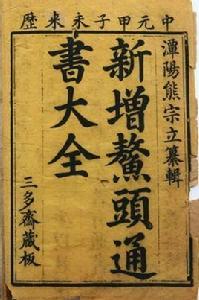 中元甲子未來歷
潭陽熊宗立纂輯
新增鰲頭通
書大全
三多齋藏板